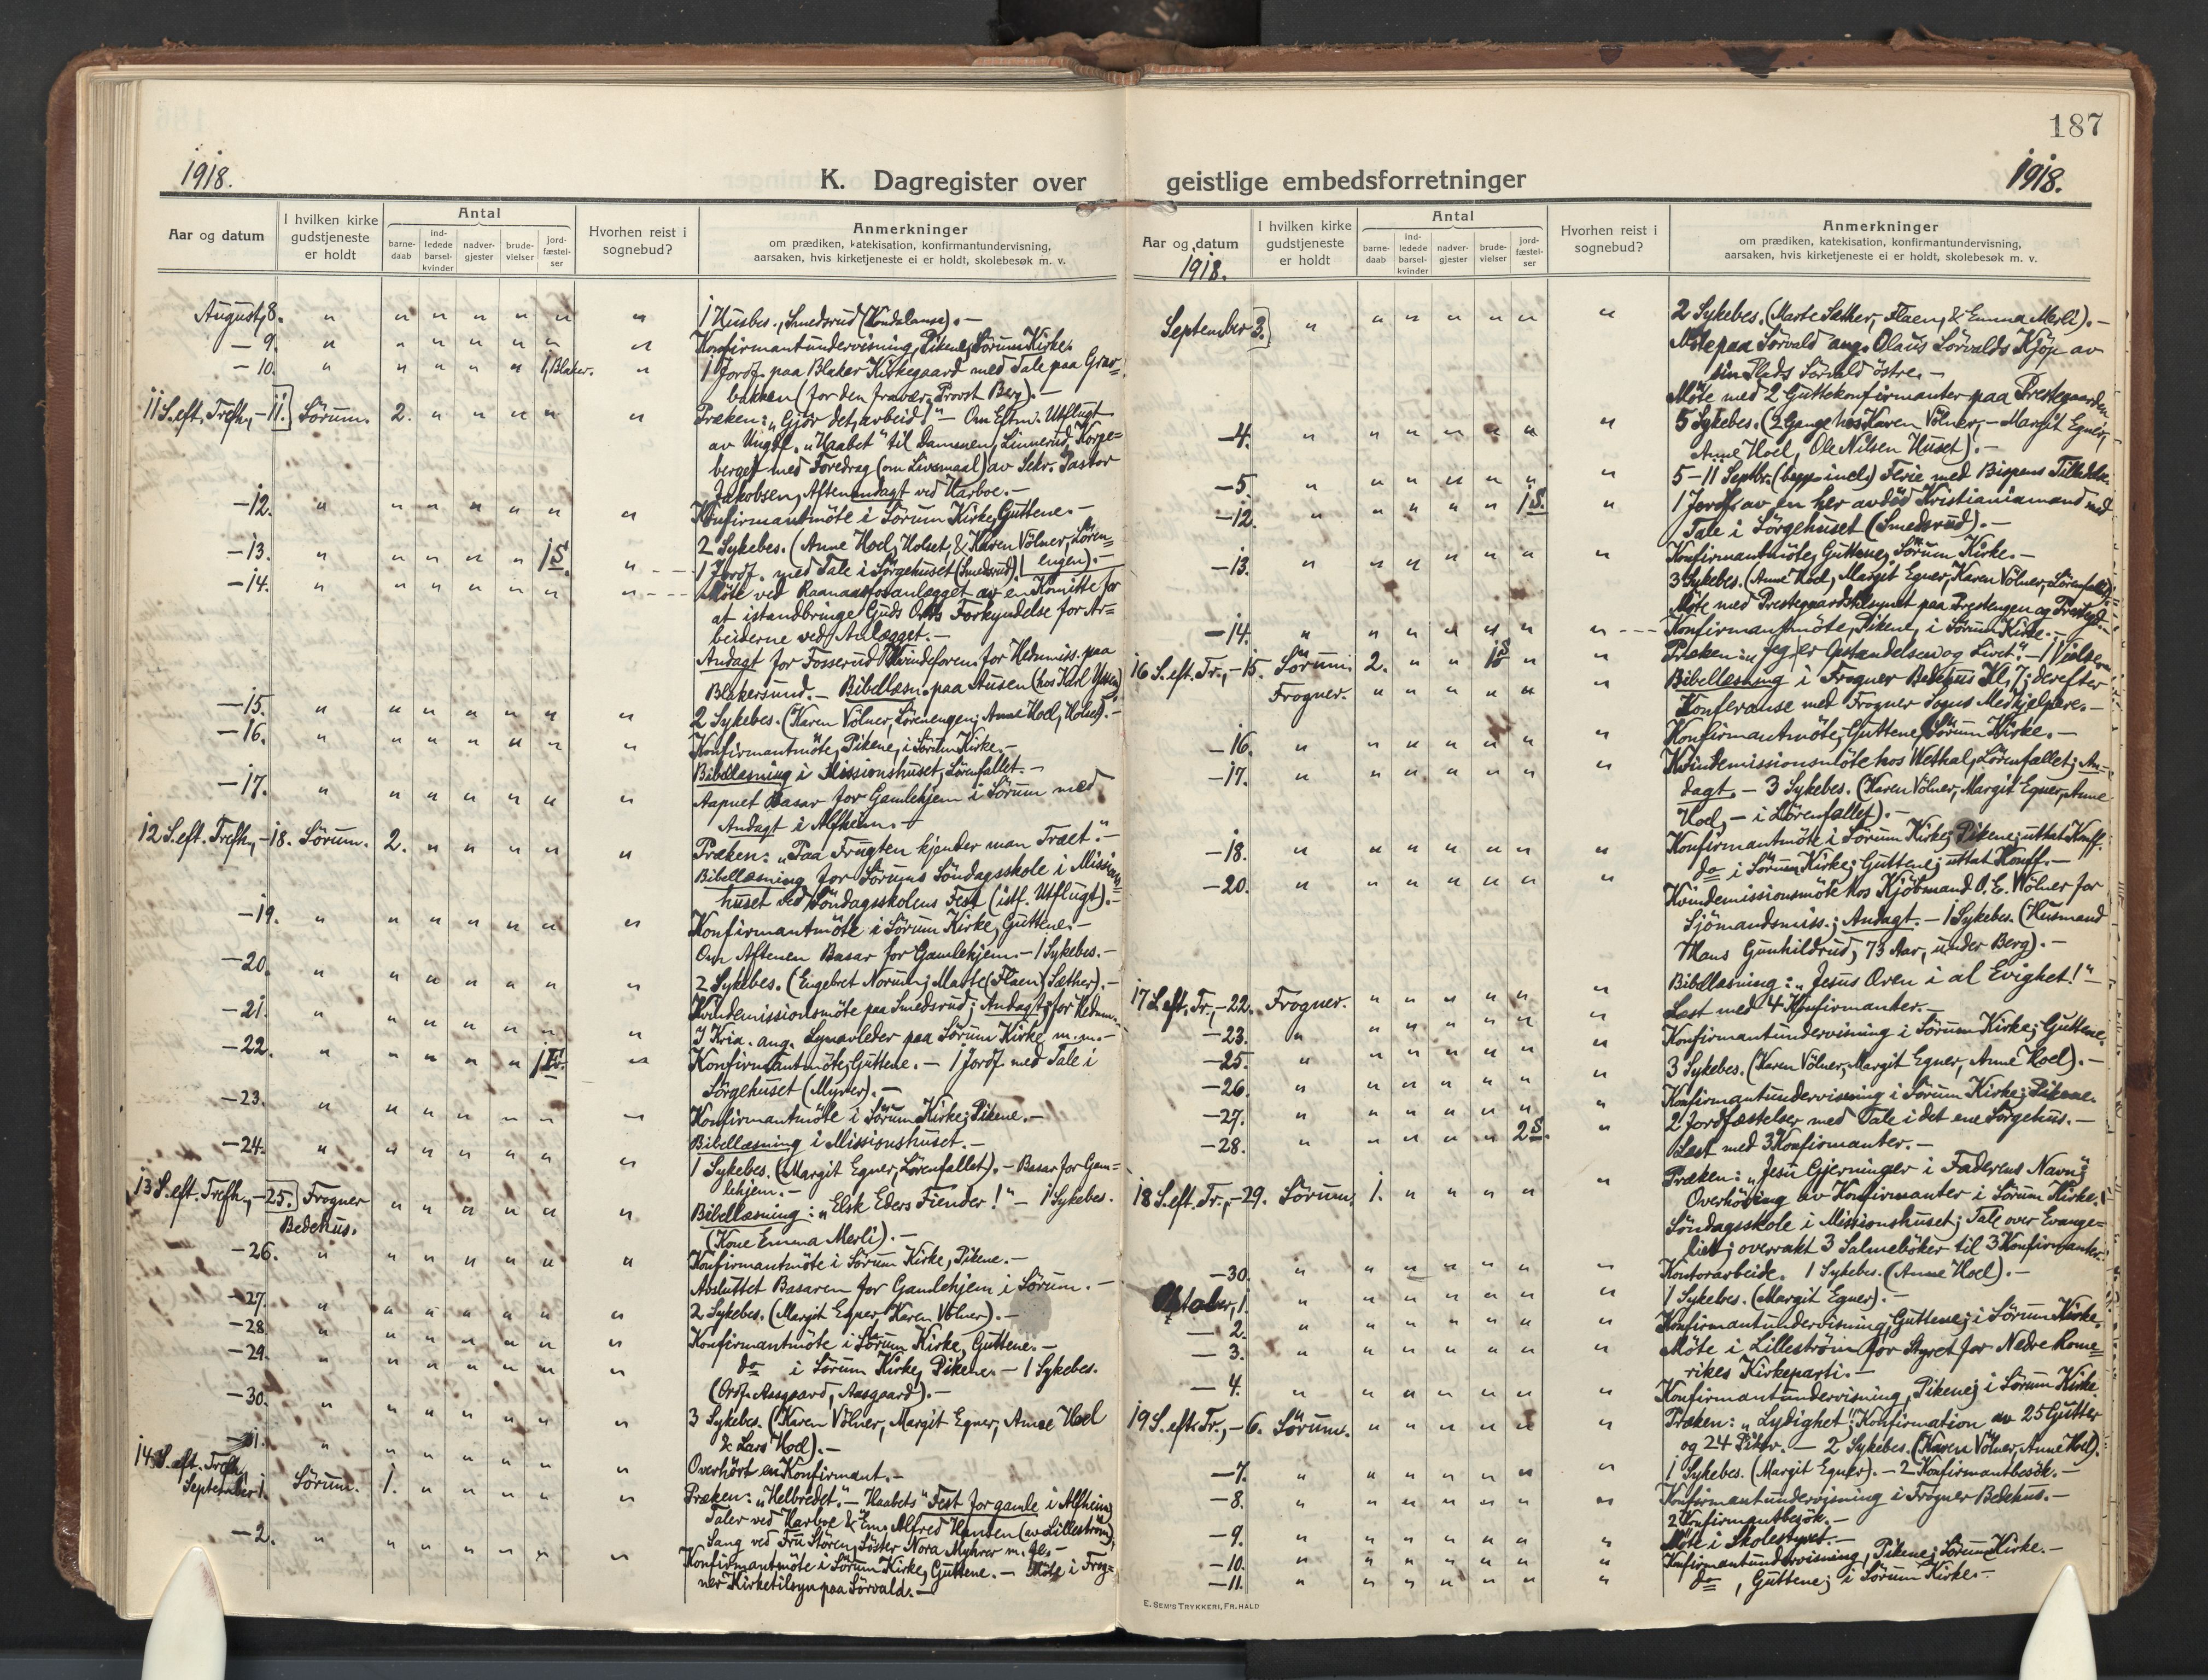 187
1918.
K. Dagregister over geistlige embedsforretninger
1918.
Aar og datum
I hvilken kirke gudstjeneste er holdt
Antal
barne-daab
ind-ledede barsel-kvinder
nadver-gjester
brude-vielser
jord-fæstel-ser
Hvorhen reist i sognebud?
Anmerkninger
om prædiken, katekisation, konfirmantundervisning,
aarsaken, hvis kirketjeneste ei er holdt, skolebesøk m. v.
August, 8. " " " " " " " 1 Husbes., Smedsrud
— 9. " " " " " " " Konfirmantundervisning, Pikene, Sörum Kirke.
— 10. " " " " " 1, Blaker. " 1 Jordf. paa Blaker Kirkegaard med Tale paa Grav-
bakken (for den fravær. Provst Berg). —
11 S. eft. Trefh., — 11. Sörum. 2. " " " " " Præken: „Gjör det, arbeid!" — Om Eftm. Utflugt
av Ungdf. „Haabet" til Damenen, Linnerud,
berget med Foredrag (om Livsmaal) av Sekr. Pastor
Jakobsen, Aftenandagt ved Harboe. —
—12. " " " " " " " Konfirmantmöte i Sörum Kirke, Guttene. —
—13. " " " " " 1 S. " 2 Sykebes. (Anne Hoel, Holset, & Karen Völner, Lören-
engen). —
1 Jordf. med Tale i Sörgehuset (Smedsrud).
—14. " " " " " " " Möte ved Raanaasfosanlægget av en Komitte for
at istandbringe Guds Ords Forkyndelse for Ar-
beiderne ved Anlægget. —
Andagt for Fosserud Kvindeforen. for Hedmiss. paa
Blakersund. — Bibellæsn. paa Ausen (hos Karl
—15. " " " " " " " 2 Sykebes. (Karen Völner, Lörenengen; Anne Hoel, Holset). —
—16. " " " " " " " Konfirmantmöte, Pikene, i Sörum Kirke. —
Bibellæsning i Missionshuset, Lörenfallet. —
—17. " " " " " " " Aapnet Basar for Gamlehjem i Sörum med
Andagt i Alfheim. —
12 S. eft. Trefh., — 18. Sörum. 2. " " " " " Præken: „Paa Frugten kjender man Træet." —
Bibellæsning for Sörums Söndagsskole i Missions-
huset ved Söndagsskolens Fest (istf. Utflugt). —
—19. " " " " " " " Konfirmantmöte i Sörum Kirke, Guttene. —
Om Aftenen Basar for Gamlehjem. — 1 Sykebes. —
—20. " " " " " " " 2 Sykebes. (Engebret Norum; Marte (Flaen) Sæther). —
Kvindemissionsmöte paa Smedsrud; Andagt; for Hedm. —
—21. " " " " " " " I Kria. ang. Lynavleder paa Sörum Kirke m.m. —
—22. " " " " " 1 " Konfirmantmöte, Guttene. — 1 Jordf. med Tale i
Sörgehuset (Myrer). —
—23. " " " " " " " Konfirmantmöte i Sörum Kirke, Pikene. —
Bibellæsning i Missionshuset. —
—24. " " " " " " " 1 Sykebes. (Margit Egner, Lörenfallet). — Basar for Gam-
lehjem. —
13 S. eft. Trefh., — 25. Frogner Bedehus. " " " " " " Bibellæsning: „Elsk Eders Fiender!" — 1 Sykebes.
(Kone Emma Merli). —
—26. " " " " " " " Konfirmantmöte i Sörum Kirke, Pikene. —
Absluttet Basaren for Gamlehjem i Sörum. —
—27. " " " " " " " 2 Sykebes. (Margit Egner, Karen Völner). —
—28. " " " " " " " Konfirmantmöte i Sörum Kirke, Guttene. —
—29. " " " " " " " do i Sörum Kirke, Pikene. — 1 Sykebes.
(Ordf. Aasgaard, Aasgaard). —
—30. " " " " " " " 3 Sykebes. (Karen Völner, Margit Egner, Anne Hoel
& Lars Hoel). —
—31. " " " " " " " Overhört en Konfirmant. —
14 S. eft. Trefh.,
September 1. Sörum. 1. " " " " " Præken: „Helbredet." — „Haabets" Fest for gamle i Alfheim;
Taler ved Harboe & Em. Alfred Hansen (av Lilleström),
Sang ved Fru Stören, Söster Nora Myhrer m. fl. —
—2. " " " " " " " Konfirmantmöte i Sörum Kirke, Guttene. — Möte i Frog-
ner Kirketilsyn paa Sörvald. —
Aar og datum
1918.
I hvilken kirke gudstjeneste er holdt
Antal
barne-daab
ind-ledede barsel-kvinder
nadver-gjester
brude-vielser
jord-fæstel-ser
Hvorhen reist i sognebud?
Anmerkninger
om prædiken, katekisation, konfirmantundervisning,
aarsaken, hvis kirketjeneste ei er holdt, skolebesøk m. v.
September 3. " " " " " " " 2 Sykebes. (Marte Sæther, Flaen, & Emma Merli). —
Möte paa Sörvald ang. Olaus Sörvalds Kjöp av
sin Plads Sörvald östre. —
Möte med 2 Guttekonfirmanter paa Prestegaarden.
—4. " " " " " " " 5 Sykebes. (2 Gange hos Karen Völner, — Margit Egner,
Anne Hoel, Ole Nilsen Huset). —
—5. " " " " " " " 5—11 Septbr. (begge incl.) Ferie med Bispens Tilladelse.
—12. " " " " " 1 S. " 1 Jordf. av en her avdöd Kristianiamand med
Tale i Sörgehuset (Smedsrud). —
Konfirmantmöte, Guttene, Sörum Kirke. —
—13. " " " " " " " 3 Sykebes. (Anne Hoel, Margit Egner, Karen Völner, Lörenfallet). —
Möte med Prestegaardstilsynet paa Prestengen og
—14. " " " " " " " Konfirmantmöte, Pikene, i Sörum Kirke. —
16 S. eft. Tr., — 15. Sörum. 2. " " 1 S " " Præken: „Jeg er Opstandelsen og Livet." — 1 Vielse. —
Frogner. " " " " " " Bibellæsning i Frogner Bedehus Kl. 7; derefter
Konferanse med Frogner Sogns Medhjelpere. —
—16. " " " " " " " Konfirmantmöte, Guttene, Sörum Kirke. —
—17. " " " " " " " Kvindemissionsmöte hos Wethal, Lörenfallet; An-
dagt. — 3 Sykebes. (Karen Völner, Margit Egner, Anne
Hoel, — i Lörenfallet). —
—18. " " " " " " " Konfirmantmöte i Sörum Kirke; Pikene; uttat Konff.
—20. " " " " " " " do i Sörum Kirke; Guttene; uttat Konff. —
Kvindemissionsmöte hos Kjöbmand O. E. Völner for
Sjömandsmiss.; Andagt. — 1 Sykebes. (Husmand
Hans Gunhildrud, 73 Aar, under Berg). —
17 S. eft. Tr., — 22. Frogner. " " " " " " Bibellæsning: „Jesus Oven i al Evighet!" —
—23. " " " " " " " Læst med 4 Konfirmanter. —
—25. " " " " " " " Konfirmantundervisning i Sörum Kirke; Guttene.
—26. " " " " " " " 3 Sykebes. (Karen Völner, Margit Egner, Anne Hoel). —
—27. " " " " " " " Konfirmantundervisning i Sörum Kirke; Pikene.
—28. " " " " " 2 S. " 2 Jordfæstelser med Tale i det ene Sörgehus. —
Læst med 3 Konfirmanter. —
18 S. eft. Tr., — 29. Sörum. 1. " " " " " Præken: „Jesu Gjerninger i Faderens Navn";
Overhöring av Konfirmanter i Sörum Kirke.
Söndagsskole i Missionshuset; Tale over Evange-
liet; overrakt 3 Salmeböker til 3 Konfirmanter.
—30. " " " " " " " Kontorarbeide. 1 Sykebes. (Anne Hoel). —
Oktober, 1. " " " " " " " 1 Sykebes. (Margit Egner). —
— 2. " " " " " " " Konfirmantundervisning; Guttene; i Sörum Kirke.
— 3. " " " " " " " Möte i Lilleström for Styret for Nedre Rome-
rikes Kirkeparti. —
— 4. " " " " " " " Konfirmantundervisning, Pikene; i Sörum Kirke
19 S. eft. Tr., — 6. Sörum. " " " " " " Præken: „Lydighet"; Konfirmation av 25 Gutter
og 24 Piker. — 2 Sykebes. (Karen Völner, Anne Hoel).
—7. " " " " " " " 1 Sykebes. (Margit Egner). — 2 Konfirmantbesök. —
—8. " " " " " " " Konfirmantundervisning i Frogner Bedehus. —
2 Konfirmantbesök. —
—9. " " " " " " " Möte i Skolestyret. —
—10. " " " " " " " Konfirmantundervisning, Pikene; Sörum Kirke. —
—11. " " " " " " " do, Guttene; i Sörum Kirke. —
E. SEM'S TRYKKERI, FR.HALD